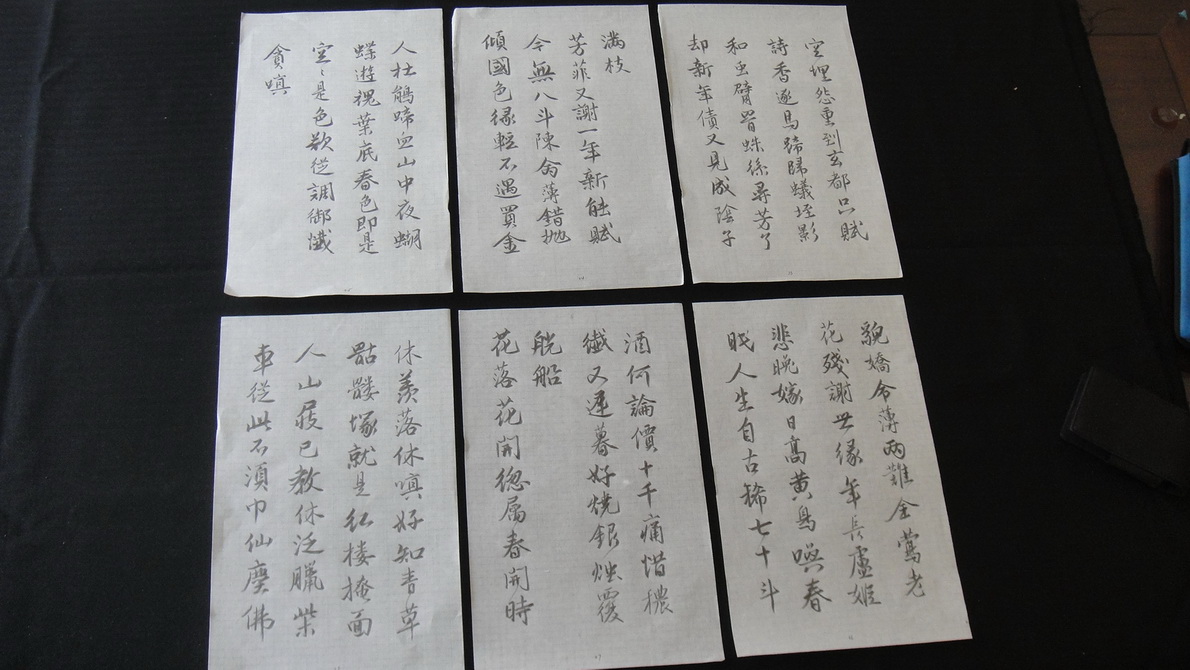 空埋怨重到玄都只賦
詩香逐馬蹄歸蟻垤影
和虫臂罥蛛絲尋芳了
却新年債又見成陰子
满枝
芳菲又謝一年新能賦
今無八斗陳命薄錯抛
傾國色緣輕不遇買金
人杜鵑啼血山中夜蝴
蝶遊魂葉底春色即是
空〻是色欲從調御懺
貪嗔
貌嬌命薄兩難全鶯老
花殘謝世缘年長盧姬
悲晚嫁日高黃鳥喚春
眠人生自古稀七十斗
酒何論價十千痛惜穠
纖又遲暮好燒銀燭覆
觥船
花落花開總属春開時
休羡落休嗔好知青草
骷髏塚就是红楼掩面
人山屐已教休泛臘柴
車從此不須巾仙塵佛